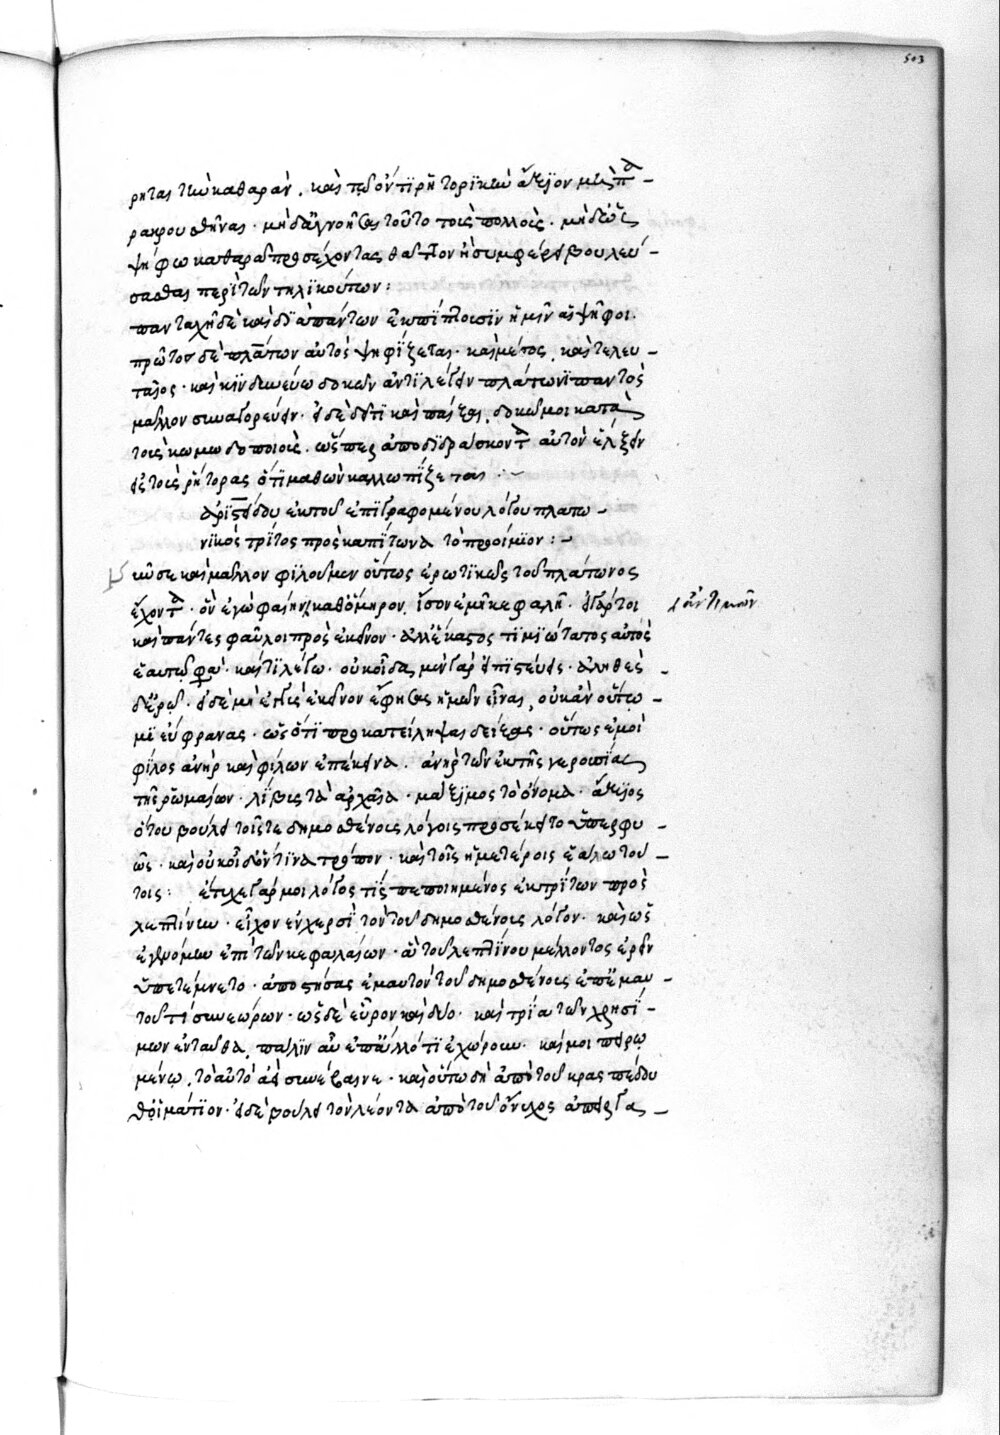 503
ρηται τὴν καθαράν. καὶ τῷ ὄντι ῥητορικὴν ἄξιον μετὰ
παρακρούσθηναι. μὴ δ' ἀγνοῆσαι τοῦτο τοῖς πολλοῖς. μηδὲ
ψήφω καθαρᾶ προσέχοντας θᾶττον ἢ συμφέρει βουλεύ-
σασθαι περὶ τῶν τηλικούτων:
πανταχῆ δὲ καὶ διαπάντων ἐκπίπτουσιν ἡμῖν αἱ ψῆφοι.
πρῶτον δὲ πλάτων αὐτὸς ψηφίζεται. καὶ μέσος, καὶ τελευ-
ταῖος. καὶ κινδυνεύω δοκεῖν ἀντιλέγειν πλάτωνι παντὸς
μᾶλλον συναγορεύειν. εἰ δὲ δεῖ τι καὶ παῖξαι, δοκῶ μοι κατὰ
τοὺς κωμωδοποιοὺς. ὥσπερ ἀποδιδράσκοντα αὐτὸν ἕλξειν
εἰς τοὺς ῥήτορας ὅτι μαθὼν καλλωπίζεται.
ἀριστείδου ἐκ τοῦ ἐπιγραφομένου λόγου πλατω-
νικὸς τρίτος πρὸς καπίτωνα τὸ προοίμιον:
καὶ σε καὶ μᾶλλον φιλοῦμεν οὕτως ἐρωτικῶς τοῦ πλάτωνος
ἔχοντα. ὃν ἐγὼ φαίην ἂν καθ' ὅμηρον, ἶσον ἐμῆ κεφαλῆ. εἰ γάρ τοι
εἰ ἀντὶ κἂν
καὶ πάντες φαῦλοι πρὸς ἐκεῖνον. ἀλλ' ἕκαστος τιμιώτατος αὐτὸς
ἑαυτῷ. καὶ τί λέγω. οὐκ οἶδα μὲν γὰρ εἰ πιστεύεις. ἀληθὲς
δ' ἐρῶ. εἰ δὲ μὴ εἰς ἐκεῖνον ἔφησας ἡμῶν εἶναι, οὐκ ἂν οὕτω
με εὔφρανας. ὡς ὅτι προκατείληψαι δείξας. οὕτως ἐμοὶ
φίλος ἀνὴρ καὶ φίλων ἐπέκεινα. ἀνὴρ τῶν ἐκ τῆς γερουσίας
τῆς ῥωμαίων. λίβυς τὰ ἀρχαῖα. μάξιμος τὸ ὄνομα. ἄξιος
ὅτου βούλει τοῖς τε δημοσθένους λόγοις προσέκειτο ὑπερφυ-
ῶς. καὶ οὐκ οἶδ' ὅντινα τρόπον. καὶ τοῖς ἡμετέροις ἑάλω τού-
τοις: ἔτυχε γάρ μοι λόγος τίς πεποιημένος ἐκ τρίτων πρὸς
λεπτίνην. εἶχον ἐν χερσὶ τὸν τοῦ δημοσθένους λόγον. καὶ ὡς
ἐγενόμην ἐπὶ τῶν κεφαλαίων. ἃ τοῦ λεπτίνου μέλλοντος ἐρεῖν
ὑπετέμνετο. ἀποστήσας ἐμαυτὸν τοῦ δημοσθένους ἐπ' ἐμαυ-
τοῦ τί συνεώρων. ὡς δὲ εὗρον καὶ δύο. καὶ τρία τῶν χρησί-
μων ἐνταῦθα, πάλιν αὖ ἐπ' ἄλλό τι ἐχώρουν. καί μοι πειρω-
μένω, τὸ αὐτὸ ἀεὶ συνέβαινε. καὶ οὔπω δὴ ἀπὸ τοῦ κρασπέδου
θοἰμάτιον. εἰ δὲ βούλει τὸν λέοντα ἀπὸ τοῦ ὄνυχος ἀπείργα-